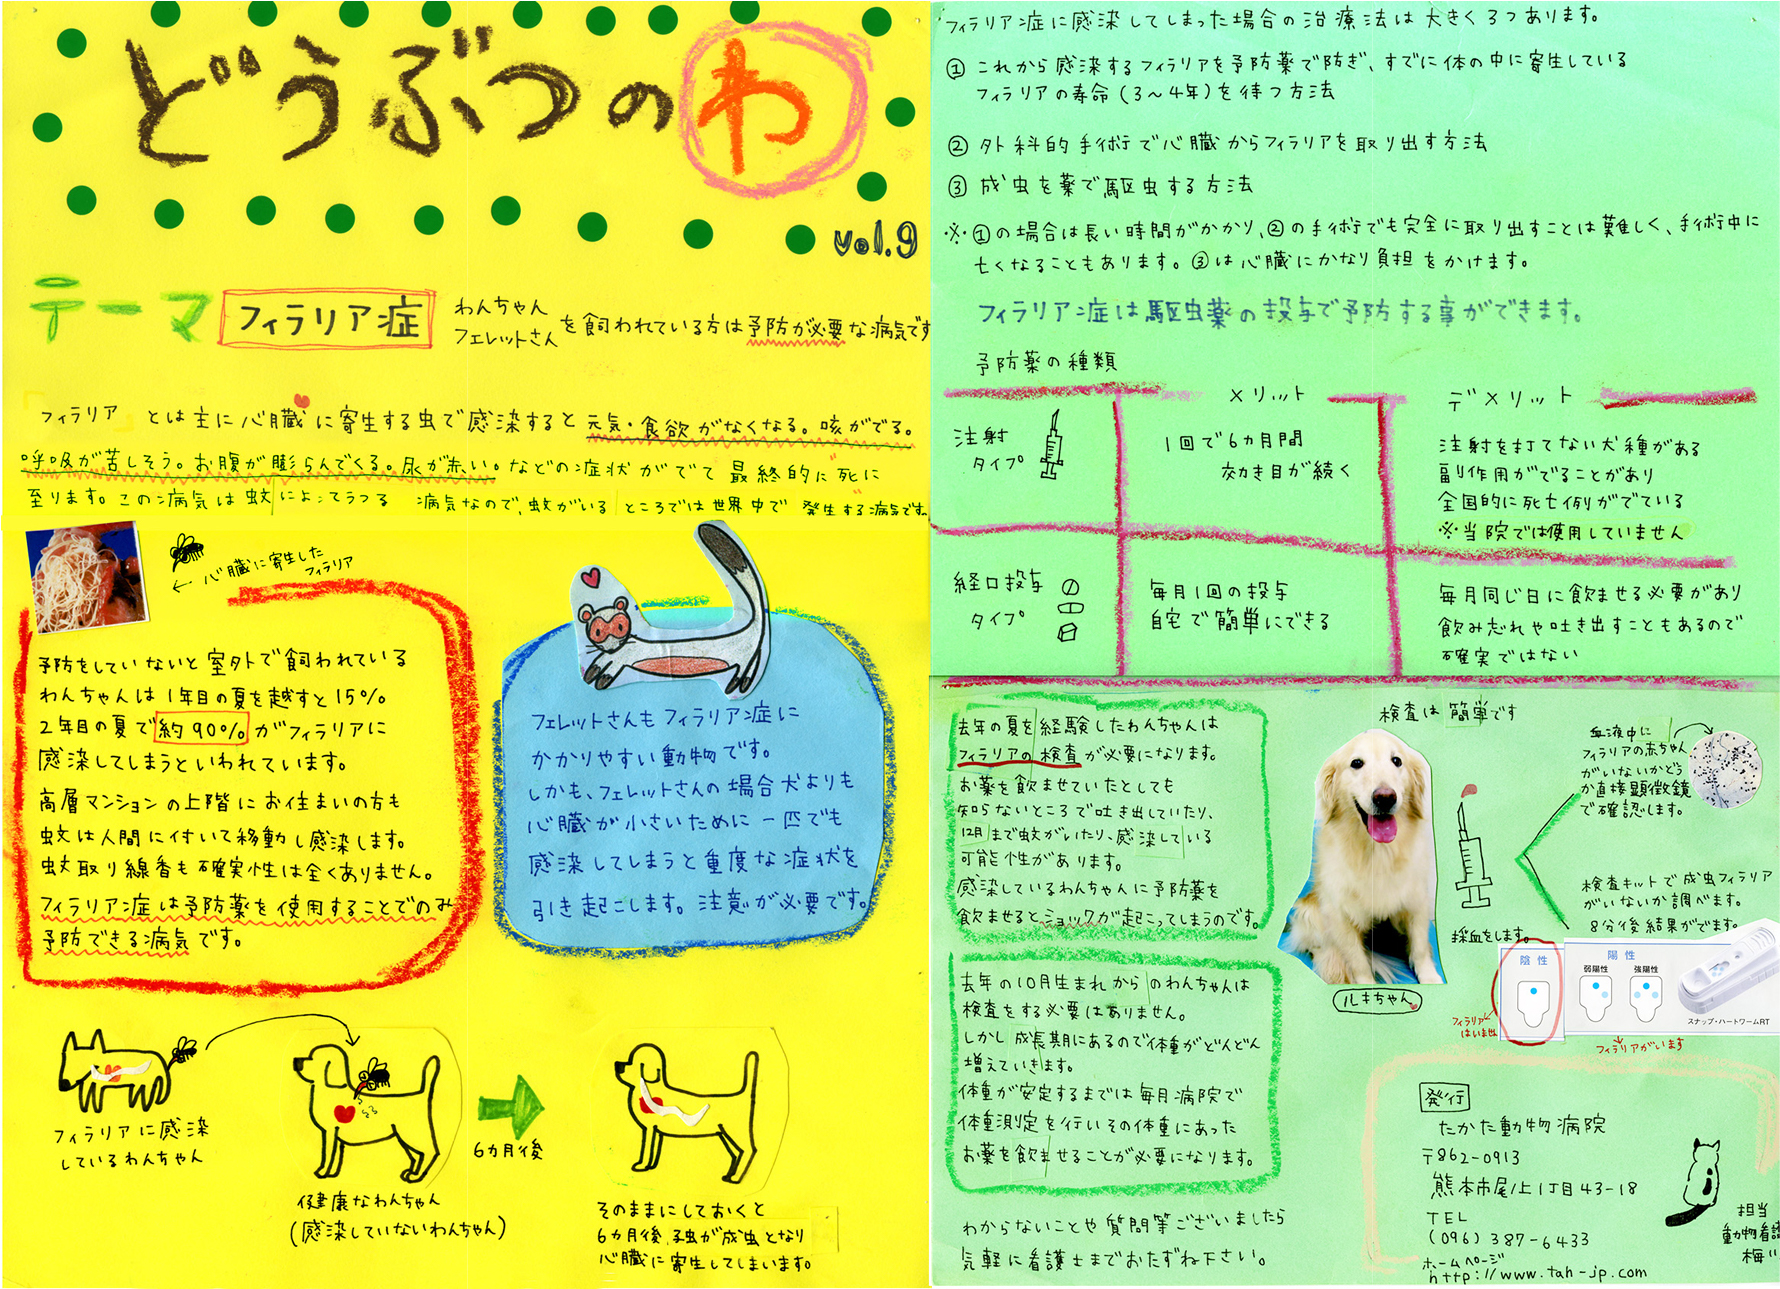 どうぶつのわ
vol.9
テーマ
フィラリア症
わんちゃん
フェレットさん
を飼われている方は予防が必要な病気です
フィラリア とは主に心臓に寄生する虫で感染すると元気・食欲がなくなる。咳がでる。
呼吸が苦しそう。お腹が膨らんでくる。尿が赤い。などの症状がでて 最終的に"死"に
至ります。この病気は蚊によってうつる 病気なので、蚊がいるところでは世界中で 発生する病気です。
←心臓に寄生した
フィラリア
予防をしていないと室外で飼われている
わんちゃんは1年目の夏を越すと15%
2年目の夏で約90%がフィラリアに
感染してしまうといわれています。
高層マンションの上階にお住まいの方も
蚊は人間に付いて移動し感染します。
蚊取り線香も確実性は全くありません。
フィラリア症は予防薬を使用することでのみ
予防できる病気です。
フェレットさんもフィラリア症に
かかりやすい動物です。
しかも、フェレットさんの場合犬よりも
心臓が小さいために一匹でも
感染してしまうと重度な症状を
引き起こします。注意が必要です。
フィラリアに感染
しているわんちゃん
健康なわんちゃん
(感染していないわんちゃん)
6カ月後
そのままにしておくと
6カ月後、子虫が成虫となり
心臓に寄生してしまいます。
フィラリア症に感染してしまった場合の治療法は大きく3つあります。
① これから感染するフィラリアを予防薬で防ぎ、すでに体の中に寄生している
フィラリアの寿命(3〜4年)を待つ方法
② 外科的手術で心臓からフィラリアを取り出す方法
③ 成虫を薬で駆虫する方法
※①の場合は長い時間がかかり、②の手術でも完全に取り出すことは難しく、手術中に
亡くなることもあります。③は心臓にかなり負担をかけます。
フィラリア症は駆虫薬の投与で予防する事ができます。
予防薬の種類
メリット
デメリット
注射
タイプ
1回で6カ月間
効き目が続く
注射を打てない犬種がある
副作用がでることがあり
全国的に死亡例がでている
※当院では使用していません
経口投与
タイプ
毎月1回の投与
自宅で簡単にできる
毎月同じ日に飲ませる必要があり
飲み忘れや吐き出すこともあるので
確実ではない
去年の夏を経験したわんちゃんは
フィラリアの検査が必要になります。
お薬を飲ませていたとしても
知らないところで吐き出していたり、
12月まで蚊がいたり、感染している
可能性があります。
感染しているわんちゃんに予防薬を
飲ませるとショックが起こってしまうのです。
去年の10月生まれからのわんちゃんは
検査をする必要はありません。
しかし成長期にあるので体重がどんどん
増えていきます。
体重が安定するまでは毎月病院で
体重測定を行いその体重にあった
お薬を飲ませることが必要になります。
わからないことや質問等ございましたら
気軽に看護士までおたずね下さい。
検査は簡単です
ルキちゃん
採血をします。
血液中に
フィラリアの赤ちゃん
がいないかどう
か直接顕微鏡
で確認します。
検査キットで成虫フィラリア
がいないか調べます。
8分後結果がでます。
陰性
陽性
弱陽性
強陽性
スナップ・ハートワームRT
フィラリア
はいませ
フィラリアがいます
発行
たかた動物病院
〒862-0913
熊本市尾ノ上1丁目43-18
TEL
(096)387-6433
ホームページ
http://www.tah-jp.com
担当
動物看護
梅